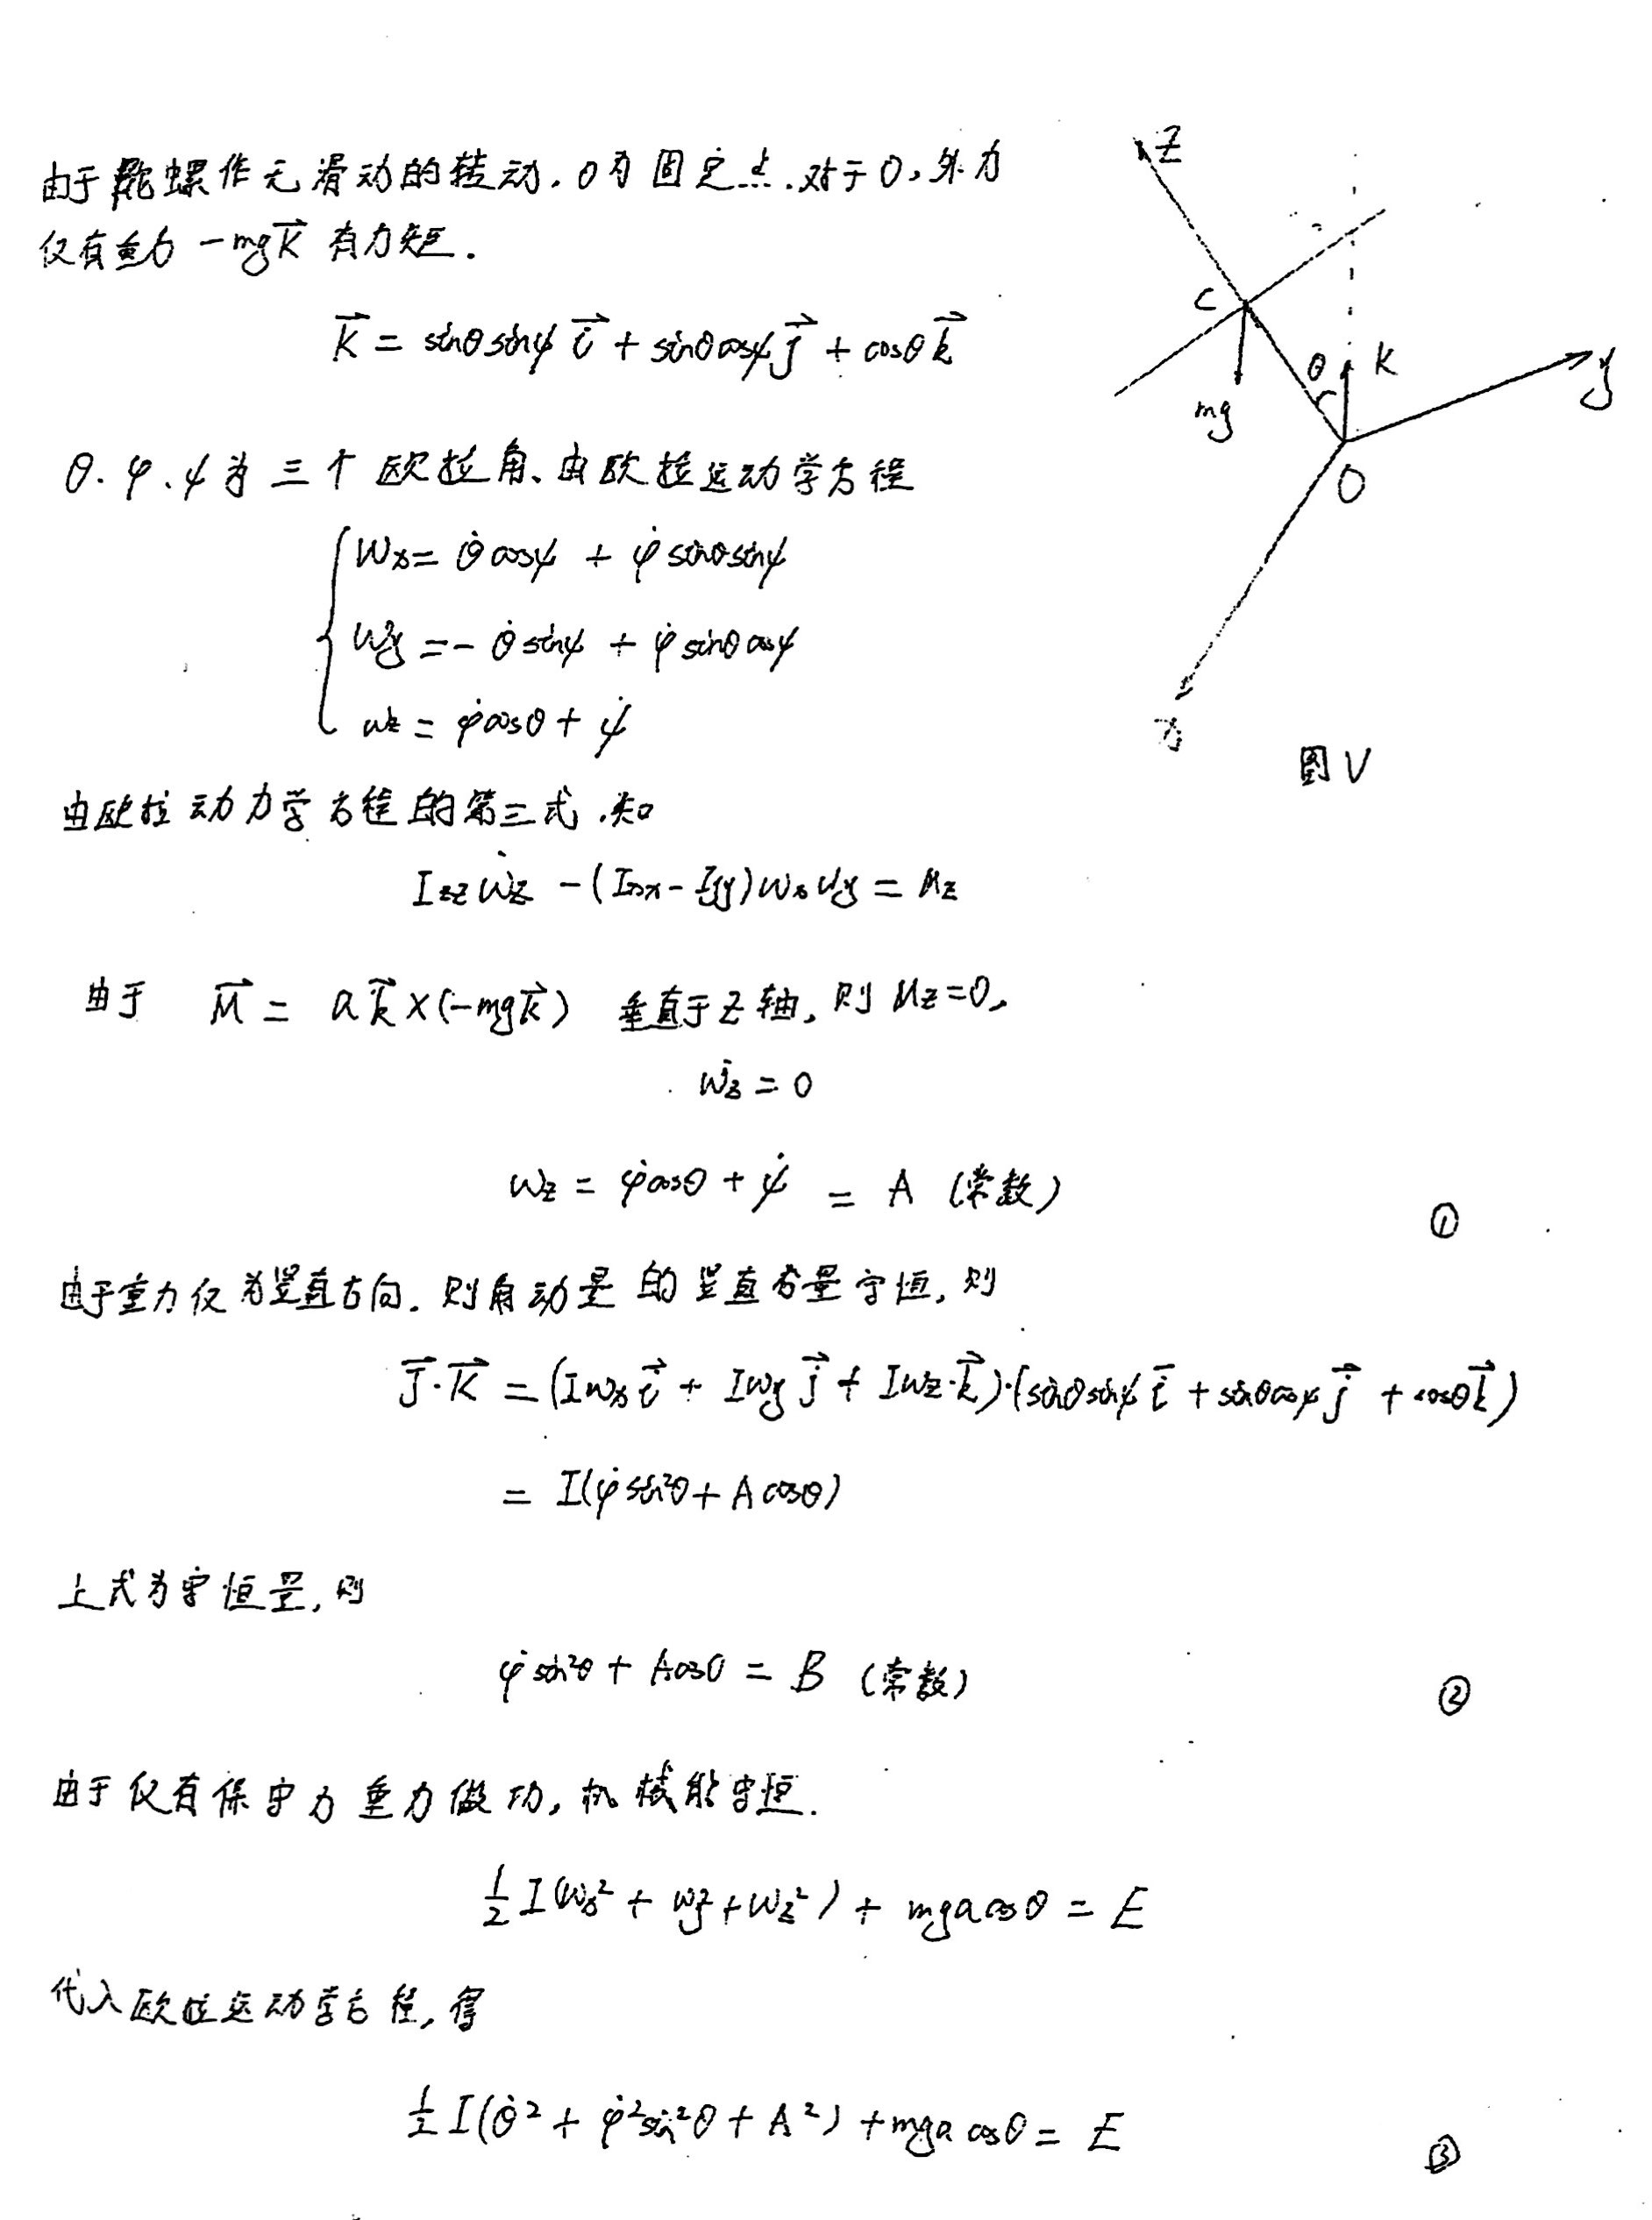 由于陀螺作无滑动的转动.O为固定点.对于O,外力
仅有重力 -mg\vec{K} 有力矩.
\vec{K} = sinθsinψ \vec{i} + sinθcosψ \vec{j} + cosθ \vec{k}
θ.φ、ψ为三个欧拉角、由欧拉运动学方程
ωx = \dot{θ}cosψ + \dot{φ}sinθsinψ
ωy = -\dot{θ}sinψ + \dot{φ}sinθcosψ
ωz = \dot{φ}cosθ + \dot{ψ}
z
C
mg
θ
K
y
O
x
图V
由欧拉动力学方程的第三式.知
Izz\dot{ω}z -(Ixx-Iyy)ωxωy = Mz
由于 \vec{M} = a\vec{k}×(-mg\vec{K}) 垂直于z轴,则Mz=0,
\dot{ω}z = 0
ωz = \dot{φ}cosθ + \dot{ψ} = A (常数) ①
由于重力仅为竖直方向.则角动量的竖直分量守恒,则
\vec{J}·\vec{K} = (Iωx\vec{i} + Iωy\vec{j} + Iωz·\vec{k})·(sinθsinψ\vec{i} + sinθcosψ\vec{j} + cosθ\vec{k})
= I(\dot{φ}sin²θ + Acosθ)
上式为守恒量,则
\dot{φ}sin²θ + Acosθ = B (常数) ②
由于仅有保守力重力做功,机械能守恒.
\frac{1}{2}I(ωx² + ωy² + ωz²) + mgacosθ = E
代入欧拉运动学方程,得
\frac{1}{2}I(\dot{θ}² + \dot{φ}²sin²θ + A²) + mga cosθ = E ③